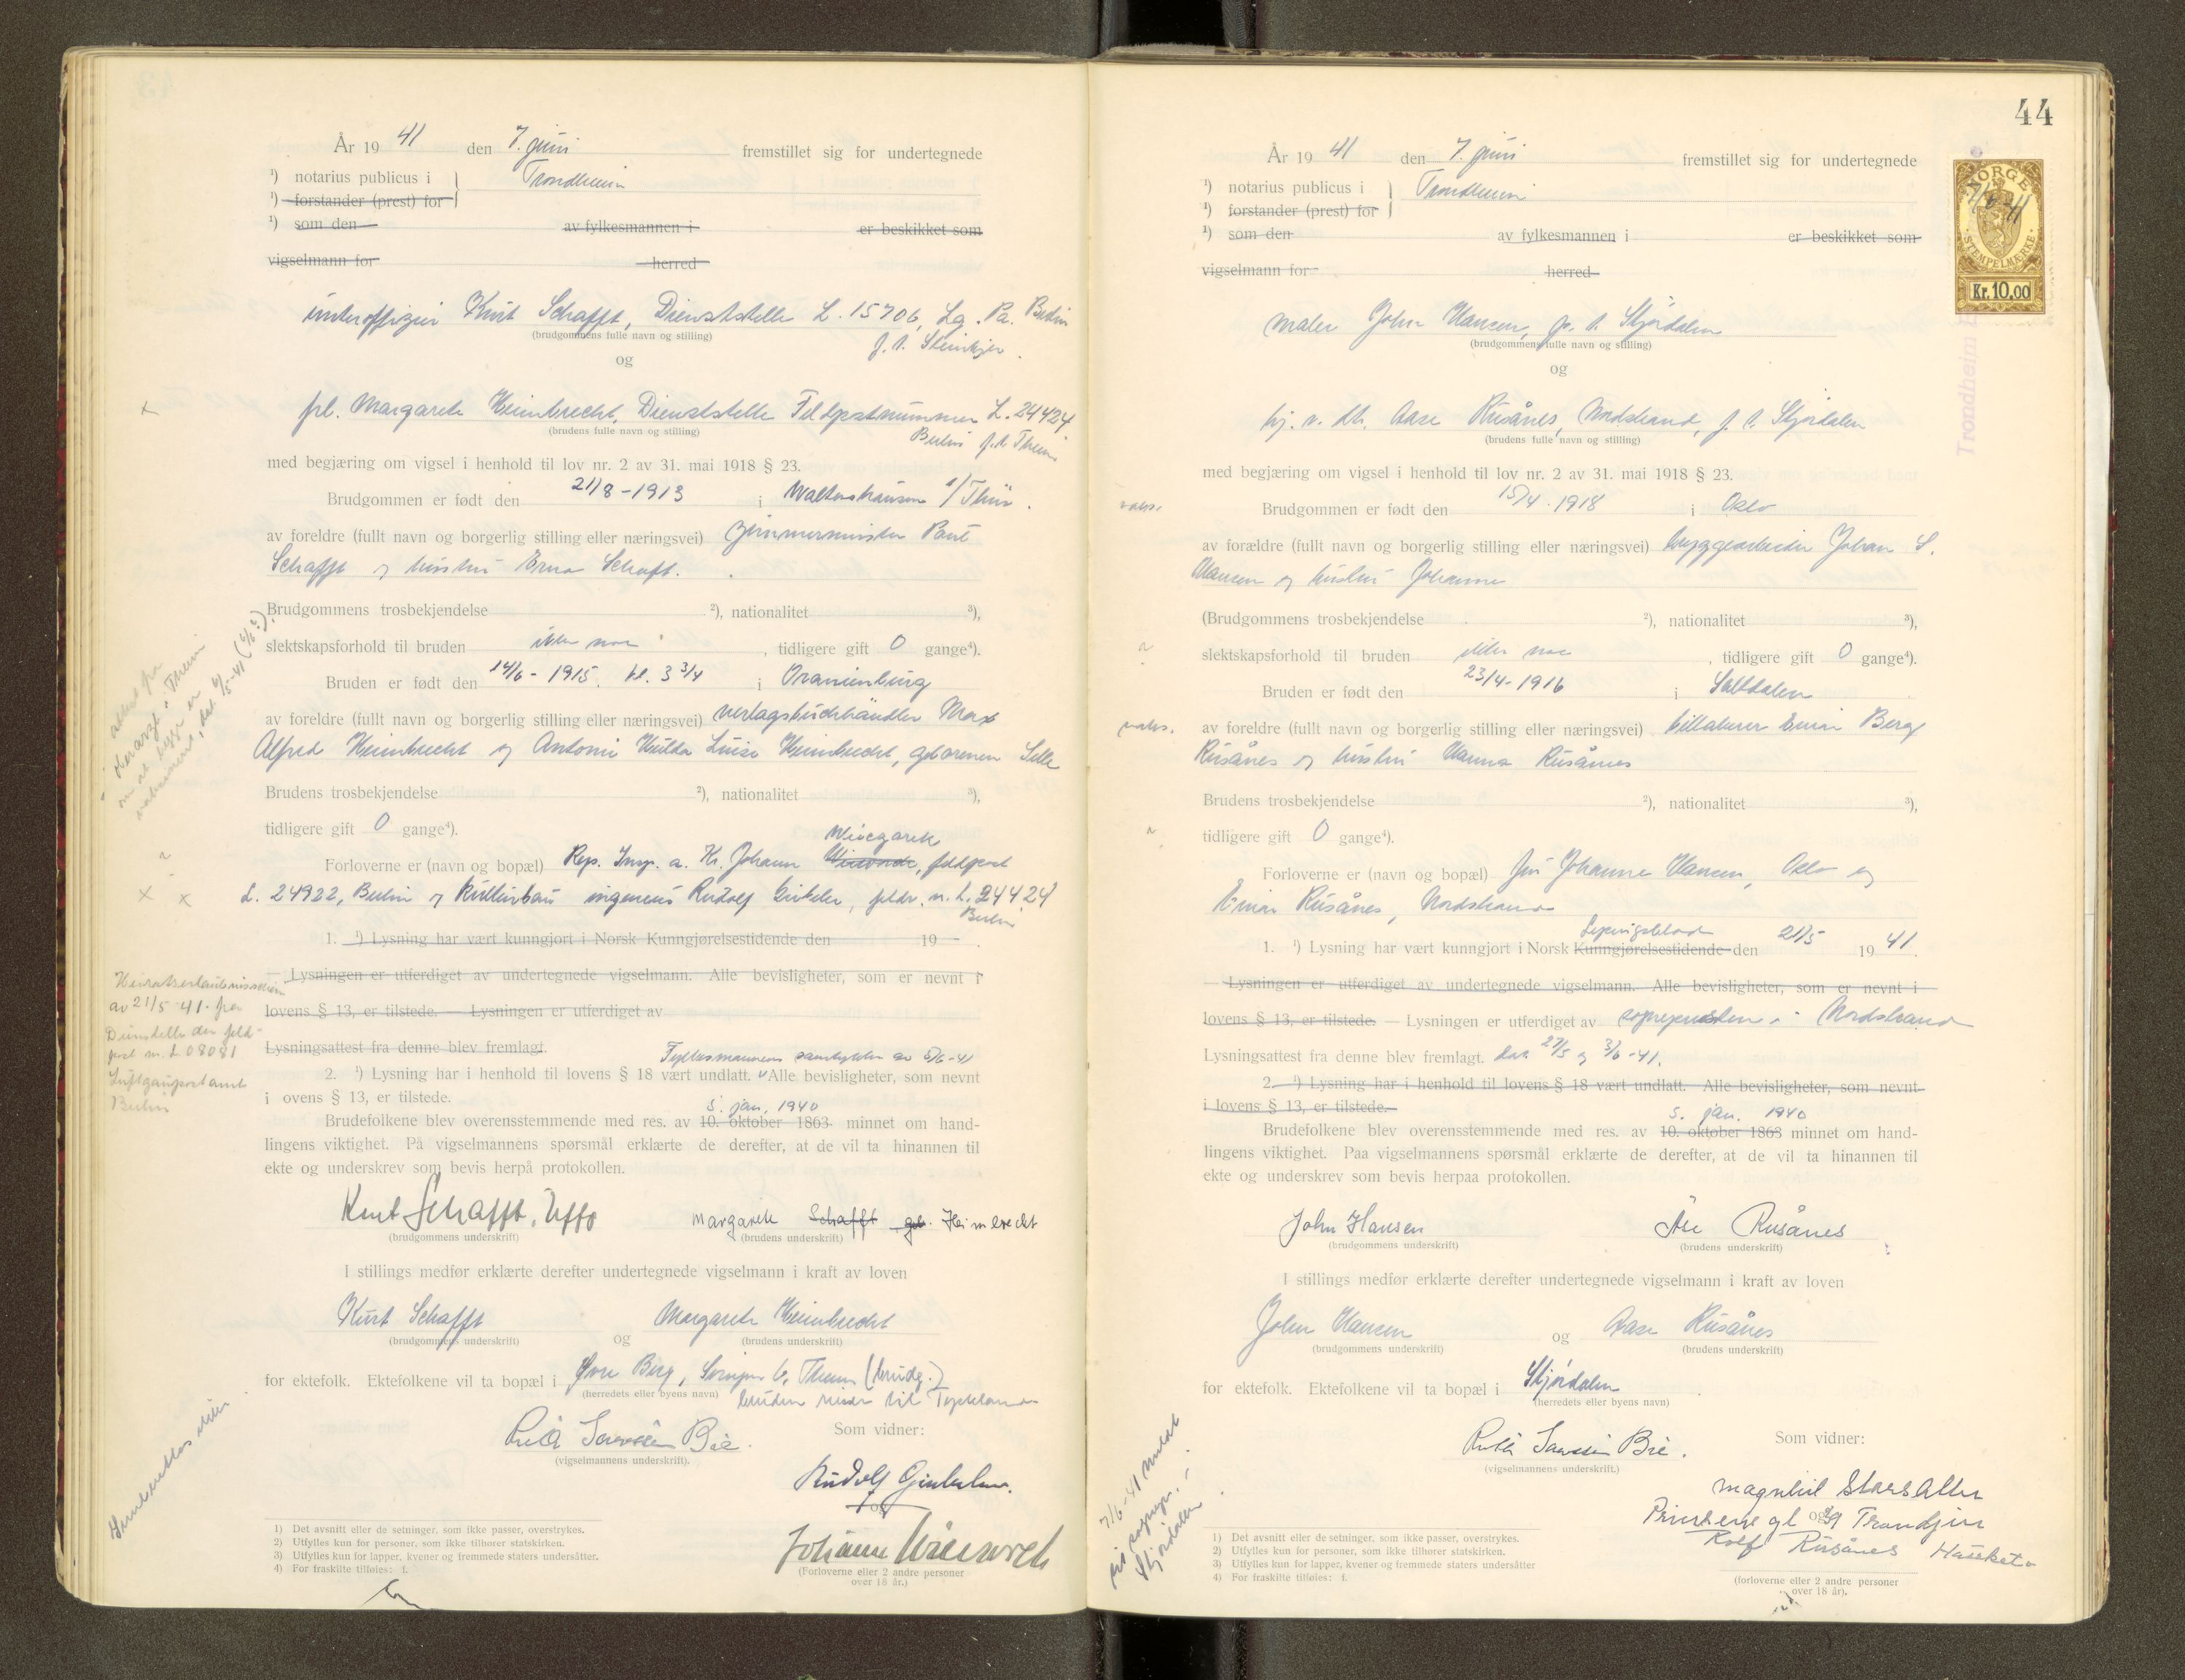 År 19 41 den 7. juni fremstillet sig for undertegnede
¹) notarius publicus i Trondheim
¹) forstander (prest) for
¹) som den av fylkesmannen i er beskikket som
vigselmann for herred
Unteroffizier Kurt Schafft, Dienststelle L. 15706, Lg. Pa. Berlin
(brudgommens fulle navn og stilling)
f. t. Steinkjer.
og
frl. Margarete Heimbrecht, Dienststelle Feldpostnummer L. 24424
(brudens fulle navn og stilling)
Berlin f. t. Theim
med begjæring om vigsel i henhold til lov nr. 2 av 31. mai 1918 § 23.
Brudgommen er født den 21/8 - 1913 i Waltershausen /Thür.
av foreldre (fullt navn og borgerlig stilling eller næringsvei) Zimmermeister
Schafft og hustru Erna Schaft.
Brudgommens trosbekjendelse ²), nationalitet ³),
slektskapsforhold til bruden ikke noe, tidligere gift 0 gange⁴).
Bruden er født den 14/6 - 1915. kl. 3 3/4 i Oranienburg
av foreldre (fullt navn og borgerlig stilling eller næringsvei) verlagsbuchhändler Max
Alfred Heimbrecht og Antonie Hulda Luise Heimbrecht, geborenen
Brudens trosbekjendelse ²), nationalitet ³),
tidligere gift 0 gange⁴).
Forloverne er (navn og bopæl) Reg. Insp. a. Kr. Johann feldpost
L. 24922, Berlin og ingeniør Rudolf feldp. n. L. 24424
Berlin
1. ¹) Lysning har vært kunngjort i Norsk Kunngjørelsestidende den 19
Lysningen er utferdiget av undertegnede vigselmann. Alle bevisligheter, som er nevnt i
lovens § 13, er tilstede. — Lysningen er utferdiget av
Lysningsattest fra denne blev fremlagt.
Fylkesmannens samtykke av 5/6-41
2. ¹) Lysning har i henhold til lovens § 18 vært undlatt. Alle bevisligheter, som nevnt
i ovens § 13, er tilstede.
5. jan. 1940
Brudefolkene blev overensstemmende med res. av 10. oktober 1863 minnet om hand-
lingens viktighet. På vigselmannens spørsmål erklærte de derefter, at de vil ta hinannen til
ekte og underskrev som bevis herpå protokollen.
Kurt Schafft, Uffz
Margarete Schafft geb. Heimbrecht
(brudgommens underskrift) (brudens underskrift)
I stillings medfør erklærte derefter undertegnede vigselmann i kraft av loven
Kurt Schafft og Margarete Heimbrecht
(brudgommens underskrift) (brudens underskrift)
for ektefolk. Ektefolkene vil ta bopæl i Øvre Berg, Theim (brudg.)
(herredets eller byens navn) bruden reiser til Tyskland
Bie.
(vigselmannens underskrift).
Som vidner:
Rudolf
og
Johann
(Forloverne eller 2 andre personer
over 18 år.)
1) Det avsnitt eller de setninger, som ikke passer, overstrykes.
2) Utfylles kun for personer, som ikke tilhører statskirken.
3) Utfylles kun for lapper, kvener og fremmede staters undersåtter.
4) For fraskilte tilføies: f.
av 21/5 41. fra
Dienststelle der feld-
post n. L 08081
Luftgaupostamt
Berlin
44
NORGE
STEMPELMERKE
Kr. 10,00
År 19 41 den 7. juni fremstillet sig for undertegnede
¹) notarius publicus i Trondheim
¹) forstander (prest) for
¹) som den av fylkesmannen i er beskikket som
vigselmann for herred
maler John Hansen, p. t. Stjørdalen
(brudgommens fulle navn og stilling)
og
hj. v. dtr. Aase Rusånes, Nordstrand, p. t. Stjørdalen
(brudens fulle navn og stilling)
med begjæring om vigsel i henhold til lov nr. 2 av 31. mai 1918 § 23.
vaks.
Brudgommen er født den 15/4 - 1918 i Oslo
av forældre (fullt navn og borgerlig stilling eller næringsvei) byggearbeider Johan S.
Hansen og hustru Johanne
(Brudgommens trosbekjendelse ²), nationalitet ³),
slektskapsforhold til bruden ikke noe, tidligere gift 0 gange⁴).
Bruden er født den 23/4 - 1916 i Saltdalen
vaks.
av foreldre (fullt navn og borgerlig stilling eller næringsvei) billakerer Einar Berg
Rusånes og hustru Hanna Rusånes
Brudens trosbekjendelse ²), nationalitet ³),
tidligere gift 0 gange⁴).
Forloverne er (navn og bopæl) fru Johanne Hansen, Oslo og
Einar Rusånes, Nordstrand
Lysingsblad
1. ¹) Lysning har vært kunngjort i Norsk Kunngjørelsestidende den 21/5 19 41.
Lysningen er utferdiget av undertegnede vigselmann. Alle bevisligheter, som er nevnt i
lovens § 13, er tilstede. — Lysningen er utferdiget av sognepresten i Nordstrand
Lysningsattest fra denne blev fremlagt. dat. 27/5 og 3/6-41.
2. ¹) Lysning har i henhold til lovens § 18 vært undlatt. Alle bevisligheter, som nevnt
i lovens § 13, er tilstede.
5. jan. 1940
Brudefolkene blev overensstemmende med res. av 10. oktober 1863 minnet om hand-
lingens viktighet. Paa vigselmannens spørsmål erklærte de derefter, at de vil ta hinannen til
ekte og underskrev som bevis herpaa protokollen.
John Hansen Åse Rusånes
(brudgommens underskrift) (brudens underskrift)
I stillings medfør erklærte derefter undertegnede vigselmann i kraft av loven
John Hansen og Aase Rusånes
(brudgommens underskrift) (brudens underskrift)
for ektefolk. Ektefolkene vil ta bopæl i Stjørdalen
(herredets eller byens navn)
Bie.
(vigselmannens underskrift.)
Som vidner:
Magnhil
Prinsens gt og
Rolf Rusånes
(forloverne eller 2 andre personer
over 18 år).
7/6-41 meldt
til sognepr. i
Stjørdalen
1) Det avsnitt eller de setninger, som ikke passer, overstrykes.
2) Utfylles kun for personer, som ikke tilhører statskirken.
3) Utfylles kun for lapper, kvener og fremmede staters undersåtter
4) For fraskilte tilføies: f.
Trondheim